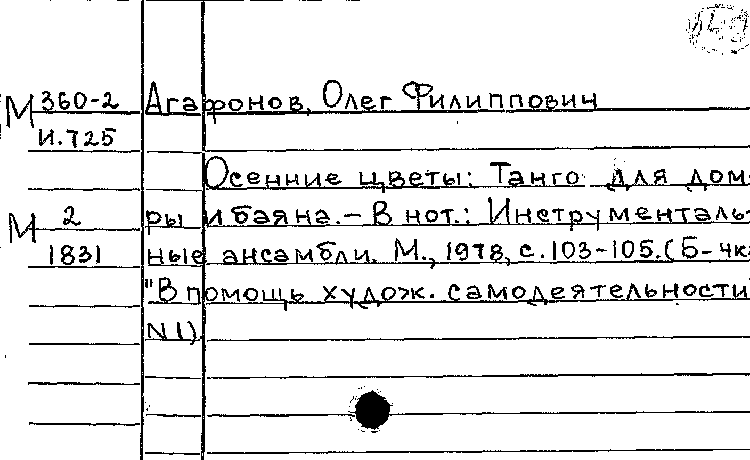 М 360-2 Агафонов, Олег Филиппович
И.725
Осенние цветы: Танго для дом-
М 2 ры и баяна. – В нот.: Инструменталь-
1831 ные ансамбли. М., 1978, с.103-105. (Б-чка
"В помощь худож. самодеятельности"
N1)